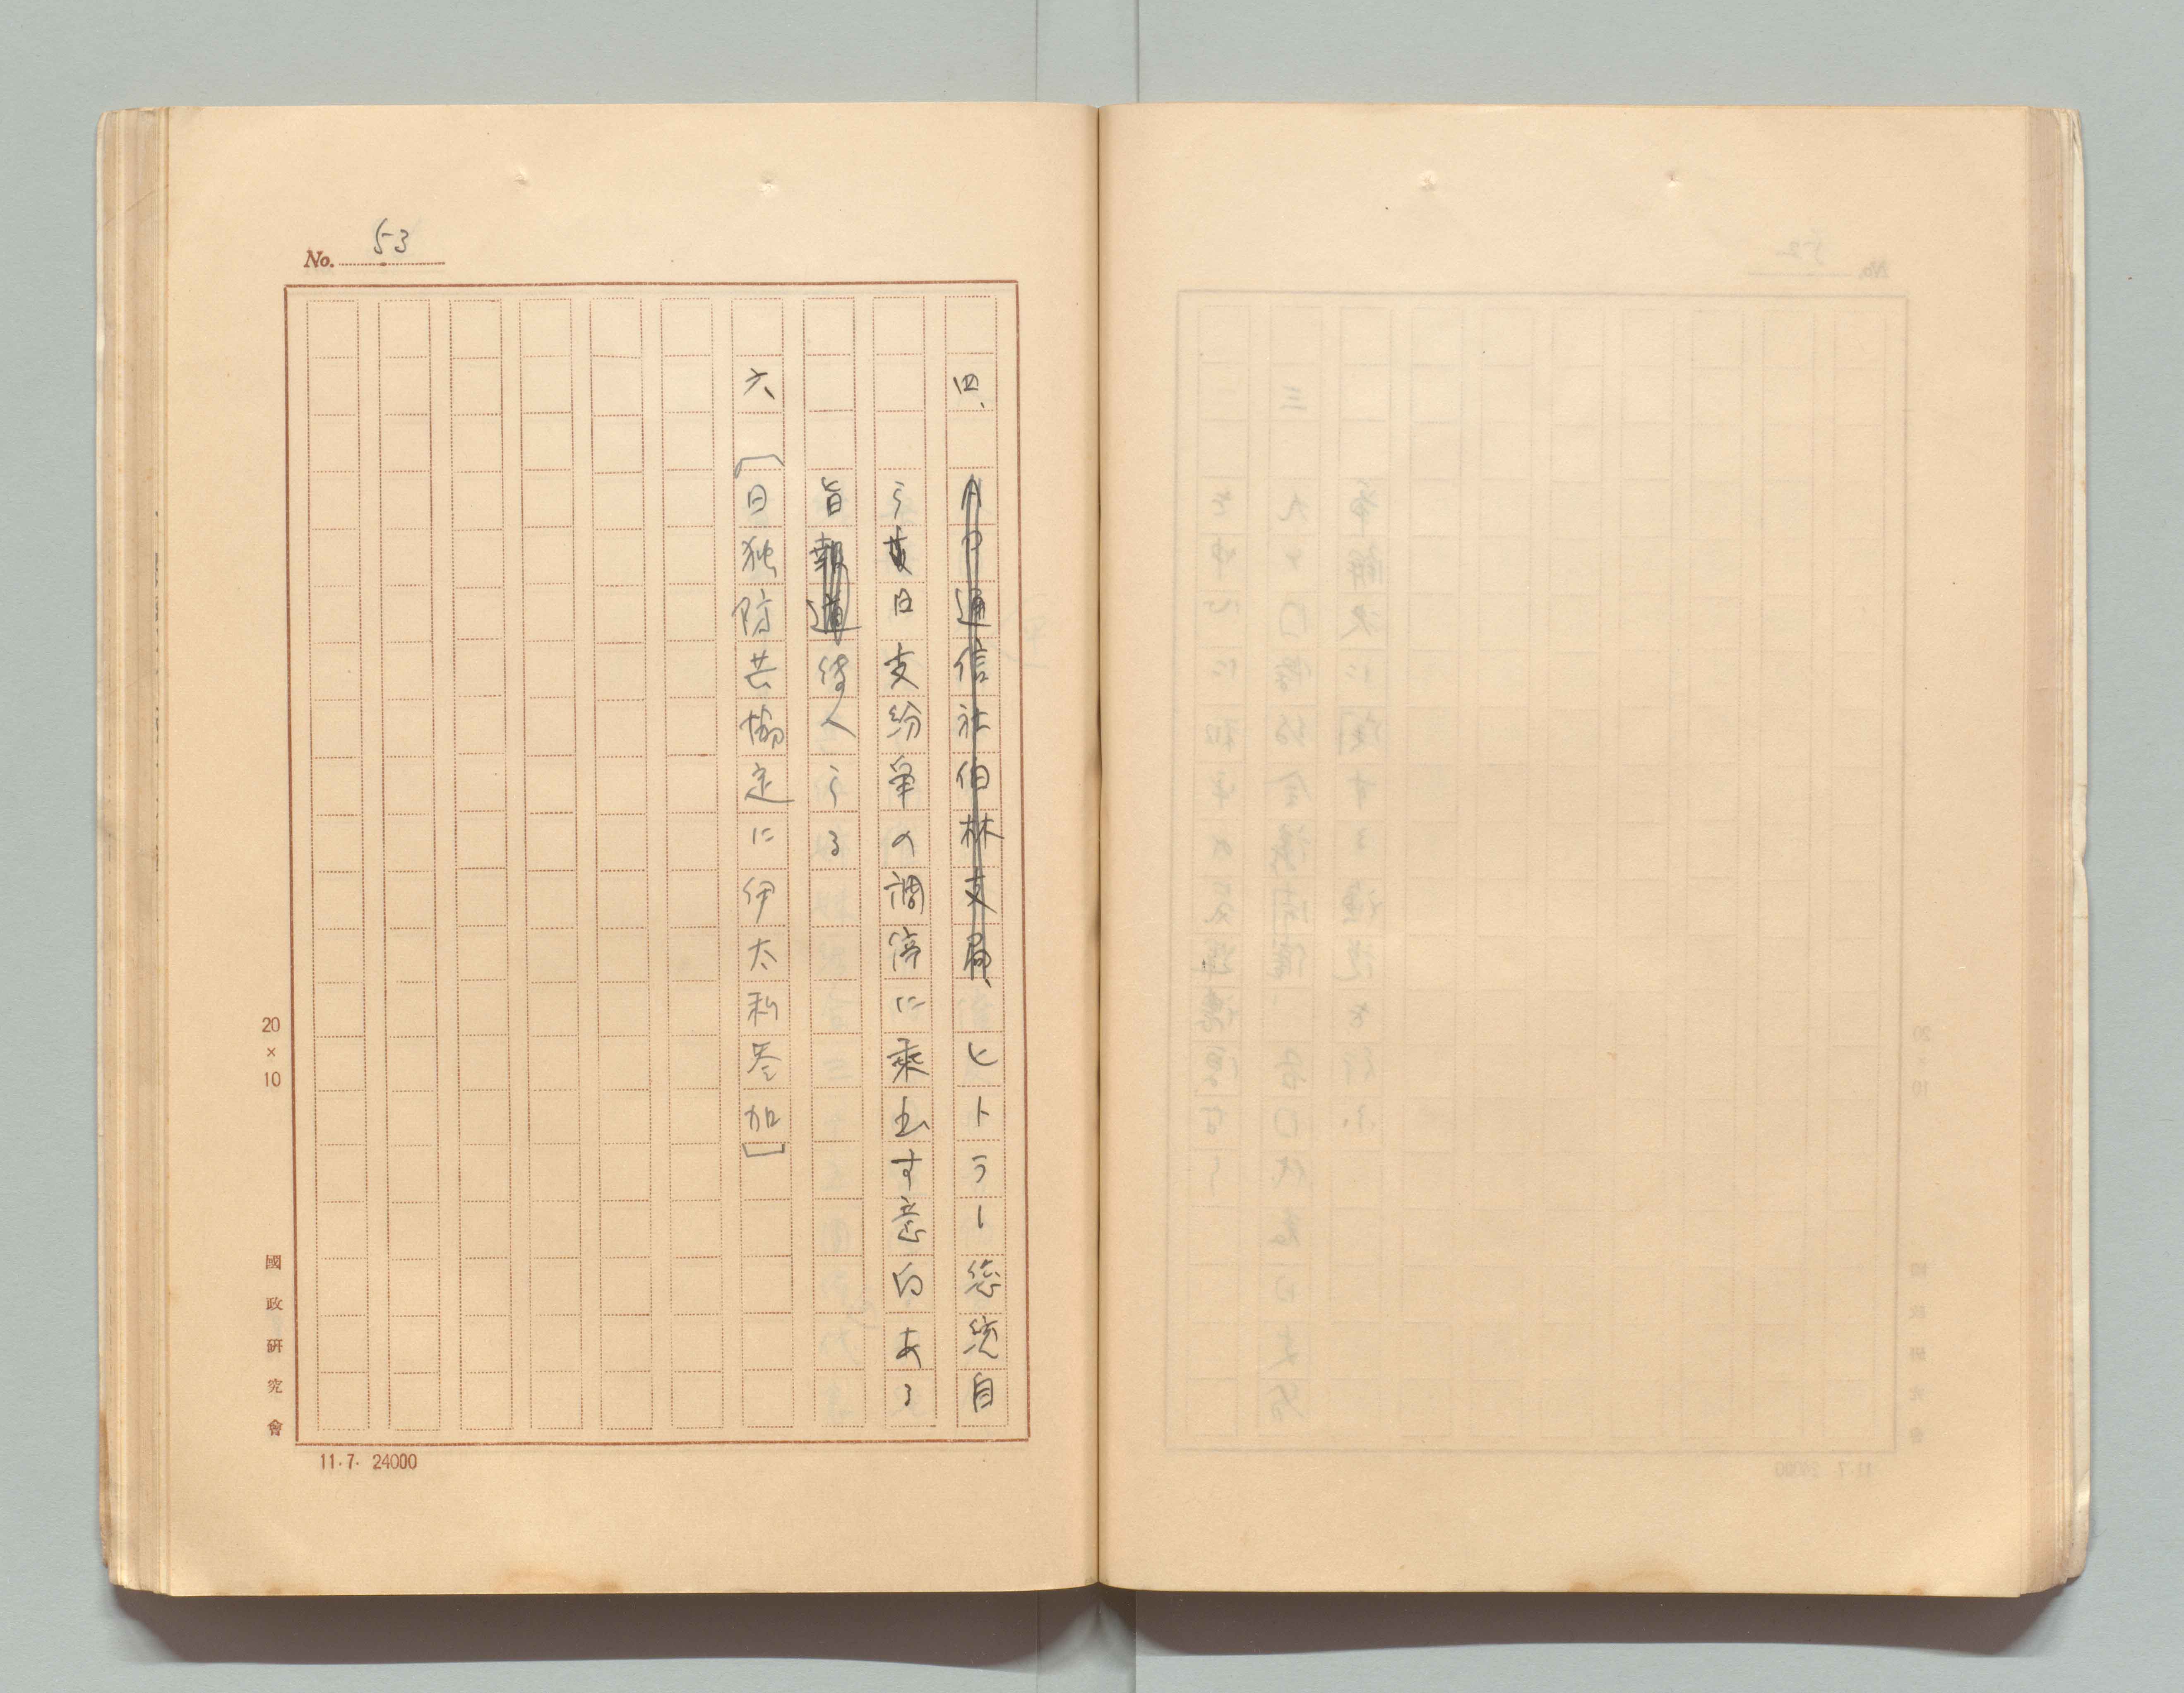 No. 53
四、 AP通信社伯林支局、ヒトラー総統自
ら日支紛争の調停に乗出す意向ある
旨報道傳へらる
六、 [日独防共協定に伊太利参加]
20×10
國政研究會
11.7. 24000